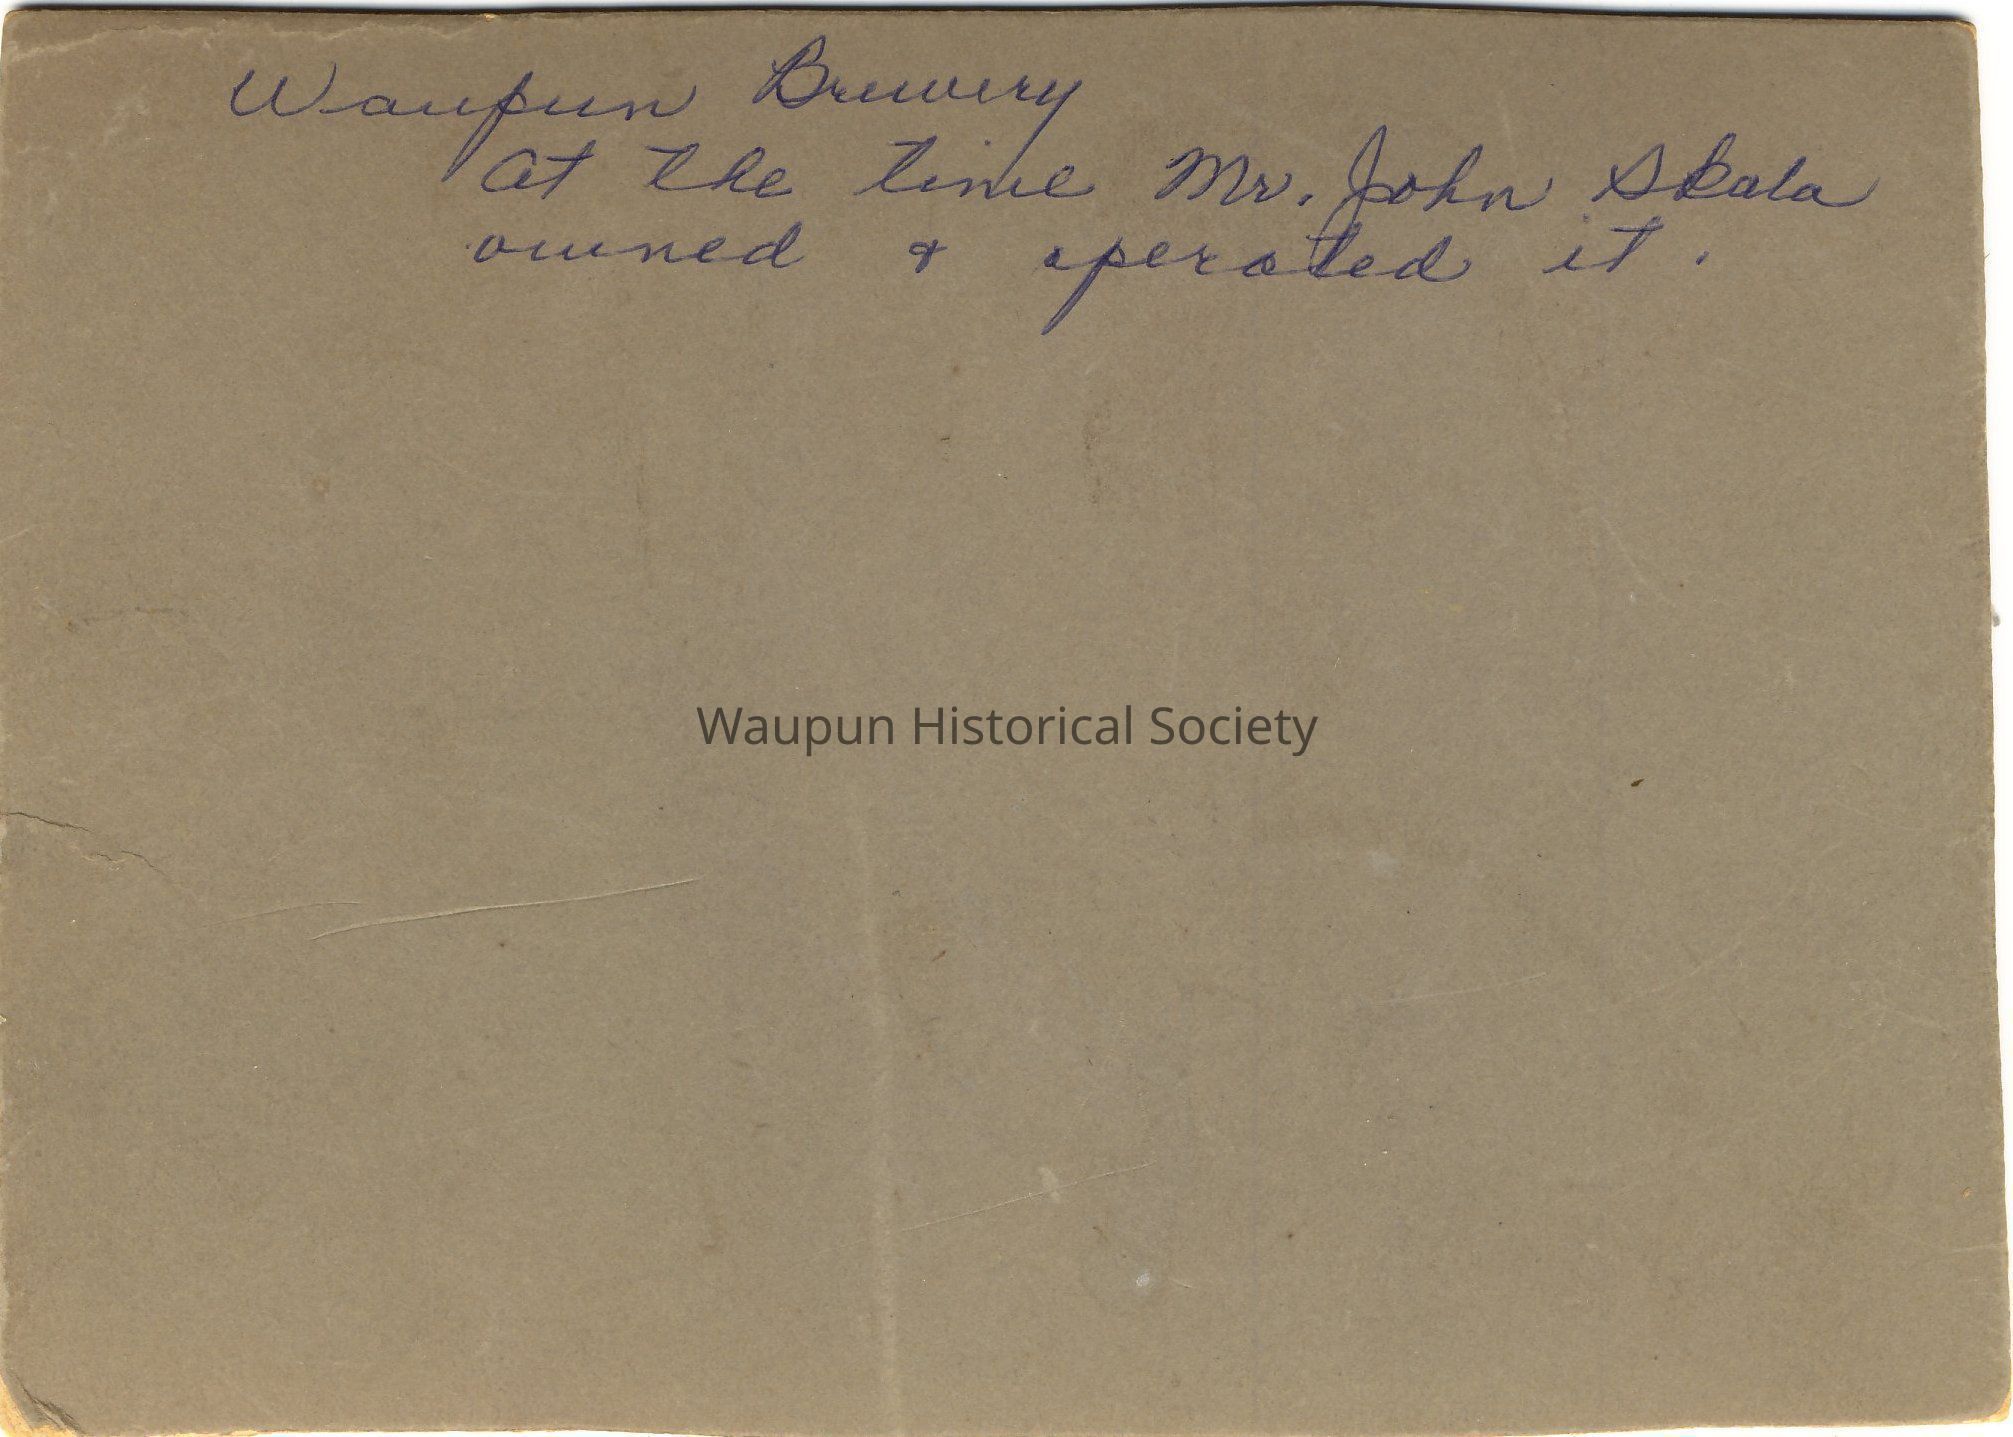 Waupun Brewery
at the time Mr. John Skala
owned & operated it.
Waupun Historical Society